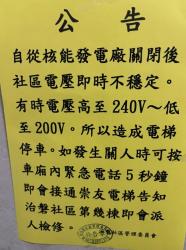 公告
自從核能發電廠關閉後
社區電壓即時不穩定。
有時電壓高至240V～低
至200V。所以造成電梯
停車。如發生關人時可按
車廂內緊急電話5秒鐘
即會接通崇友電梯告知
治磐社區第幾棟即會派
人檢修。
社區管理委員會